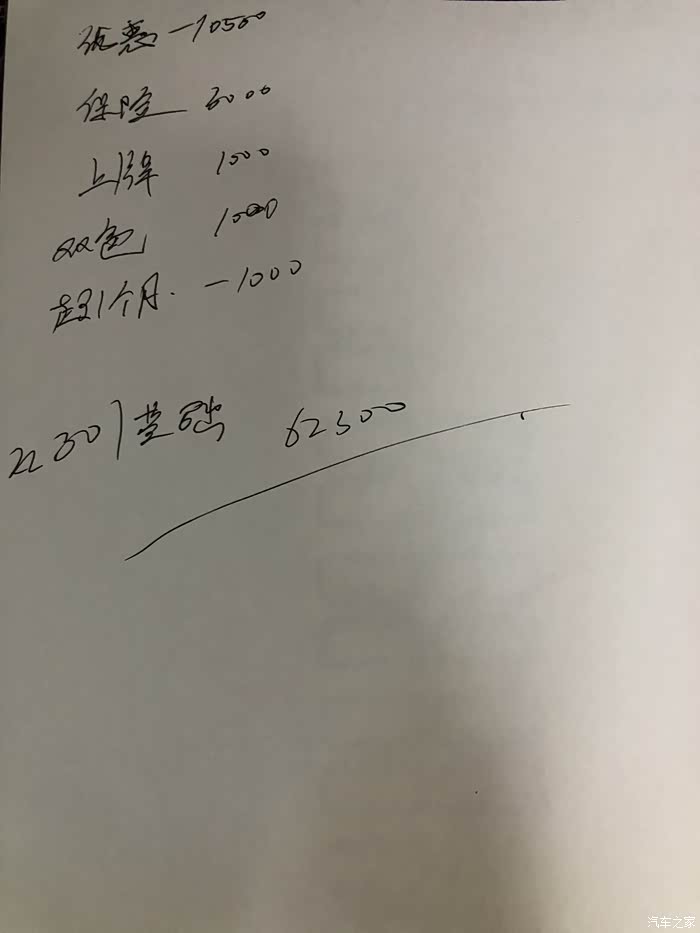 优惠 -10500
保险 5000
上牌 1000
双包 1000
赵1个月. -1000
2230 基础 62300
汽车之家